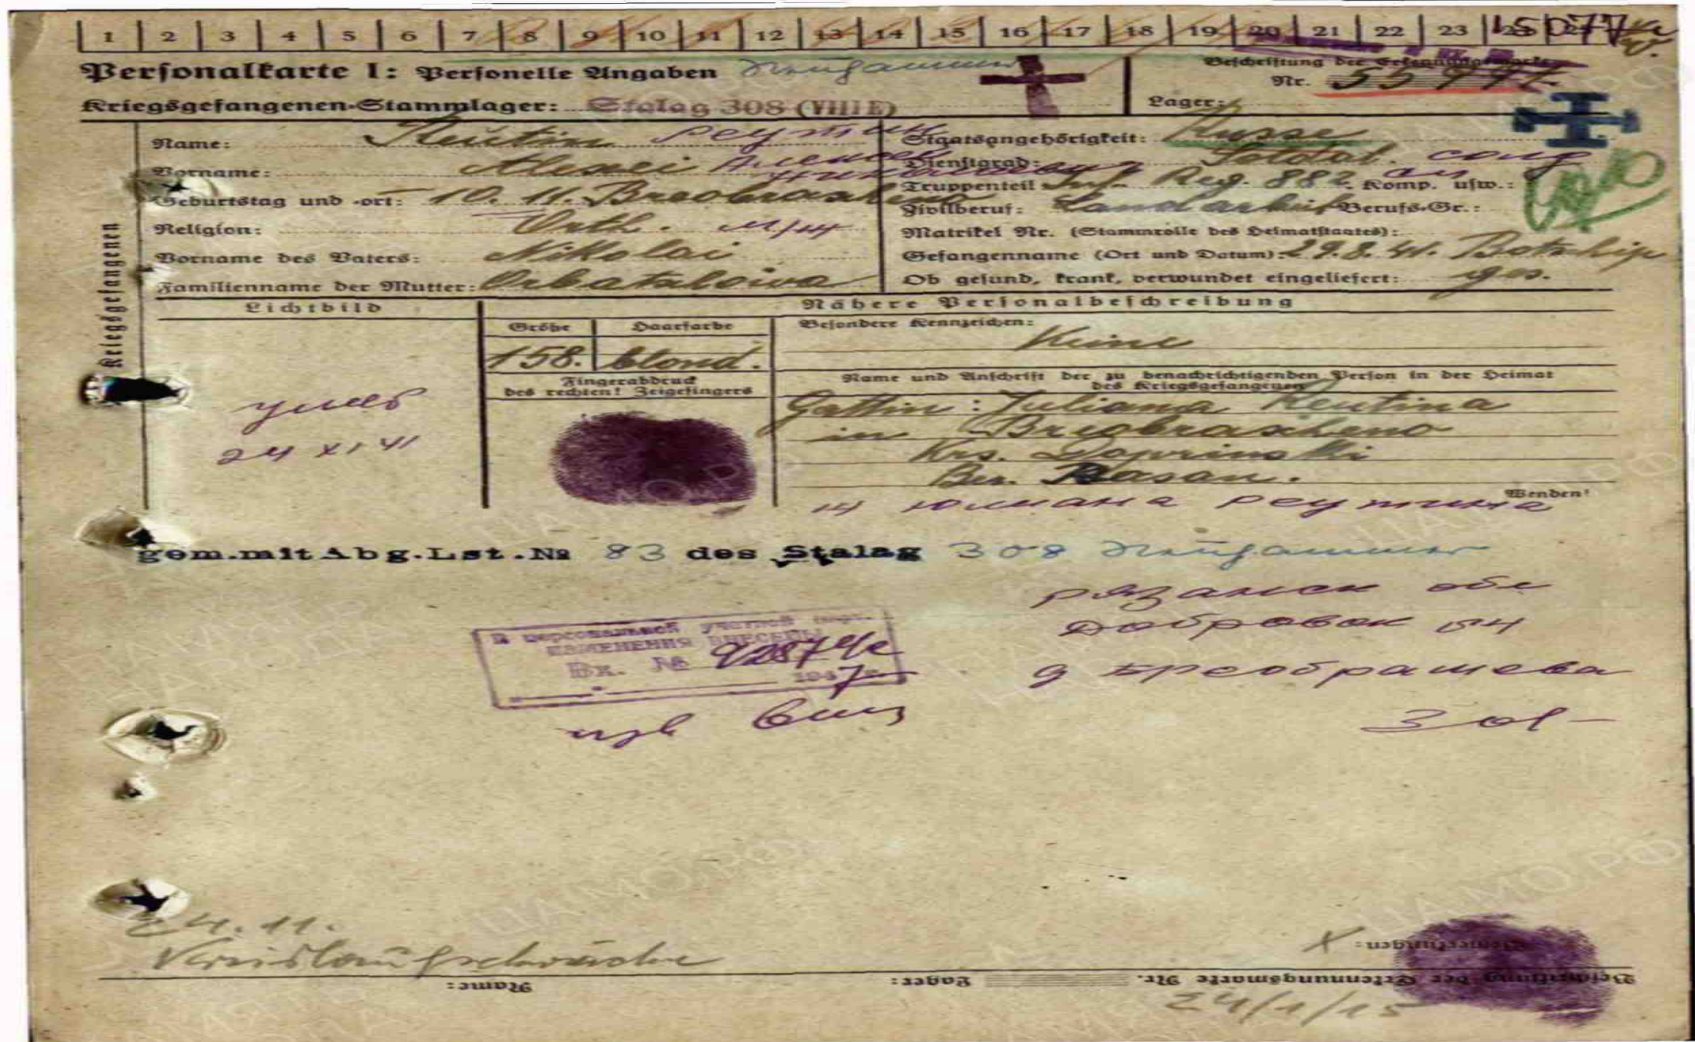 1 2 3 4 5 6 7 8 9 10 11 12 13 14 15 16 17 18 19 20 21 22 23
Personalkarte I: Personelle Angaben Neuhammer
Beschriftung der Erkennungsmarke
Nr.
Kriegsgefangenen-Stammlager: Stalag 308 (VIII E)
Lager:
Kriegsgefangenen
Name: Reutin Реутин
Vorname: Alexei Алексей Николаевич
Geburtstag und -ort: 10. 11. Breobraxheno
Religion: Orth.
Vorname des Vaters: Nikolai
Familienname der Mutter: Orbatalowa
Staatsangehörigkeit: Russe
Dienstgrad: Soldat солд
Truppenteil Inf. Reg. 882 Komp. usw.:
Zivilberuf: Landarbeit Berufs-Gr.:
Matrikel Nr. (Stammrolle des Heimatstaates):
Gefangennahme (Ort und Datum): 29.8.41.
Ob gesund, krank, verwundet eingeliefert: ges.
Lichtbild
Nähere Personalbeschreibung
Größe Haarfarbe Besondere Kennzeichen:
158. blond. Keine
Fingerabdruck
des rechten! Zeigefingers
Name und Anschrift der zu benachrichtigenden Person in der Heimat
des Kriegsgefangenen
Gattin: Juliana Reutina
in Breobraxheno
Krs. Doprinski
Bez. Rasan.
Wenden!
умер
24 XI 41
Юлиана Реутина
gem.mit Abg.Lst.№ 83 des Stalag 308 Neuhammer
Рязанск обл
д Бреобрашева
В персональной учетной карт.
ИЗМЕНЕНИЯ ВНЕСЕНЫ
Вх. №
1947
24.11.
Kreislaufschwäche
Bemerkungen:
Beschriftung der Erkennungsmarke Nr.
Lager:
Name: